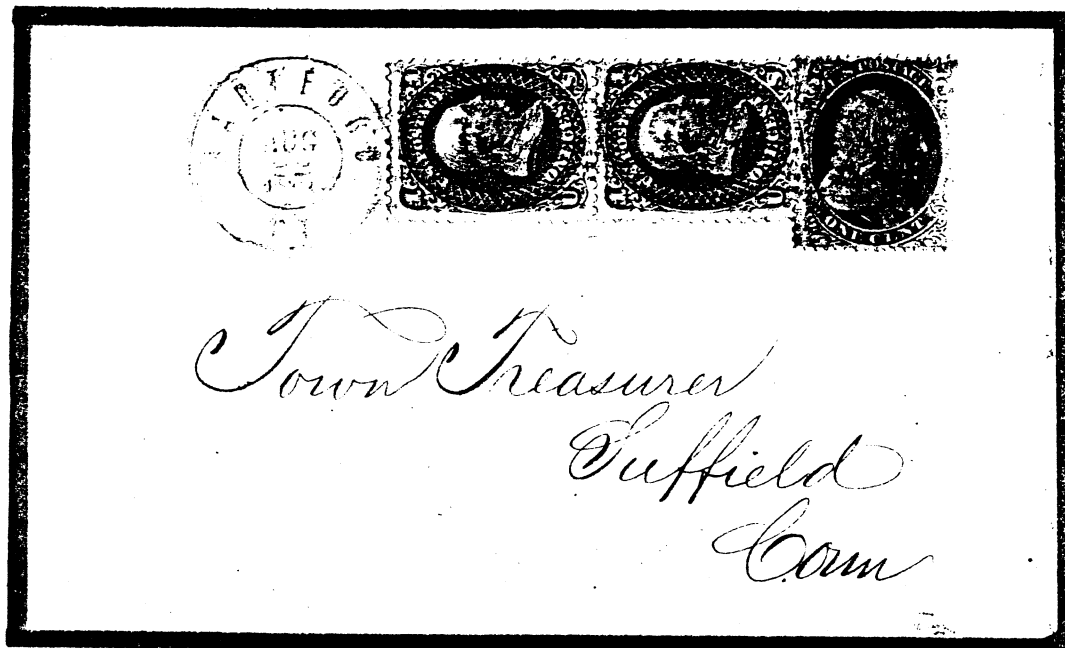 HARTFORD
AUG
CT
U.S. POSTAGE
ONE CENT
Town Treasurer
Suffield
Conn